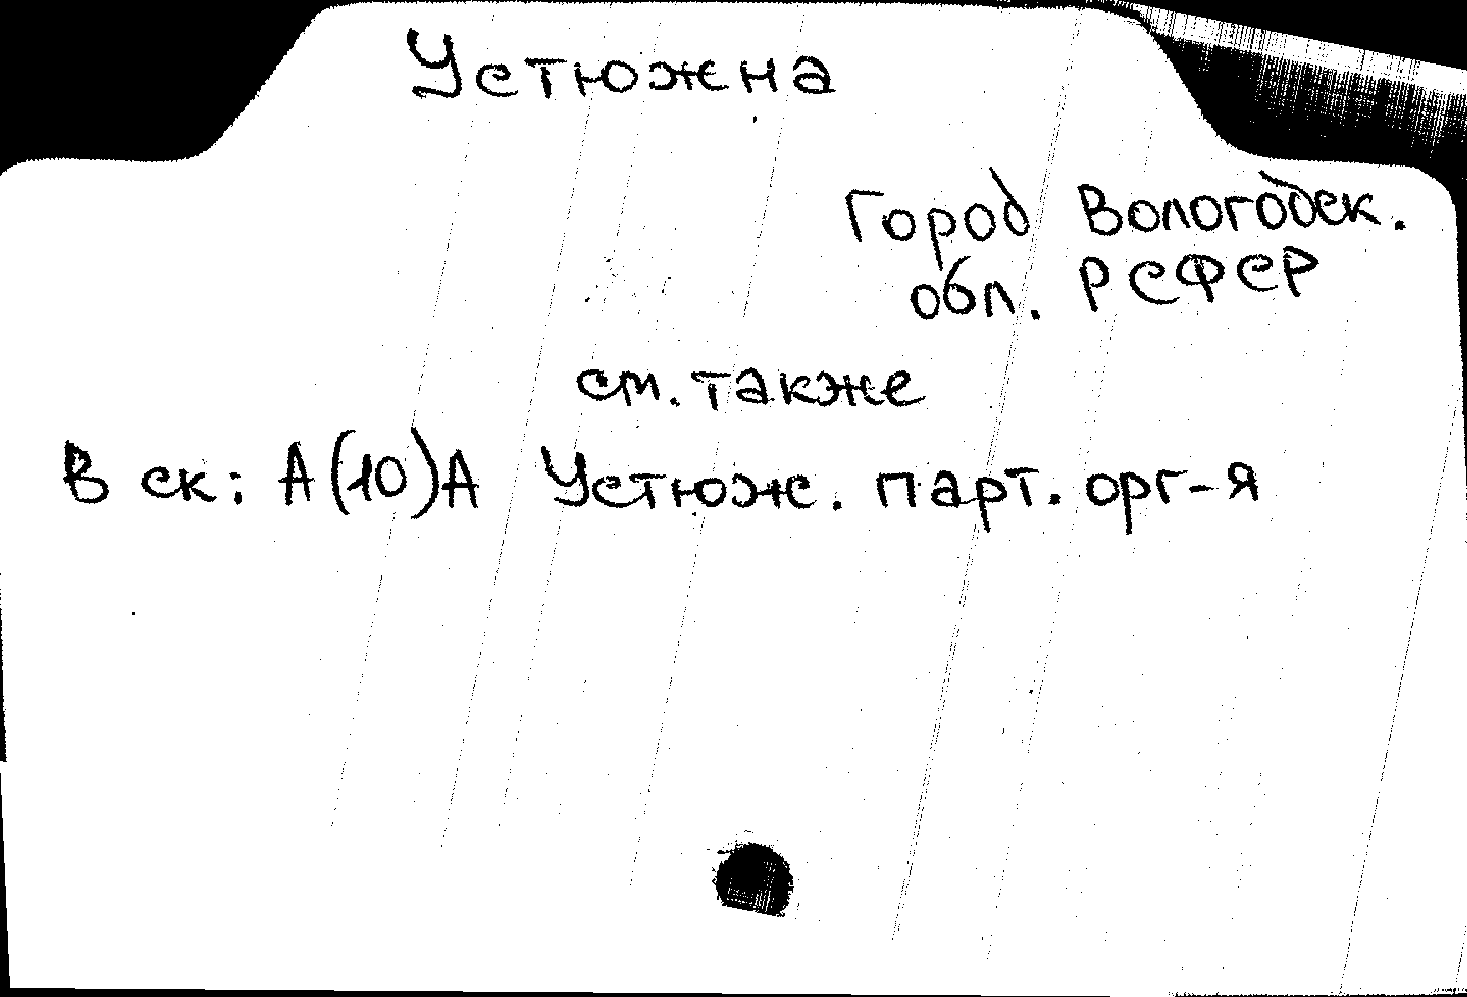 Устюжна
Город Вологодск.
обл. РСФСР
см. также
В ск: А(10)А Устюж. парт. орг-я